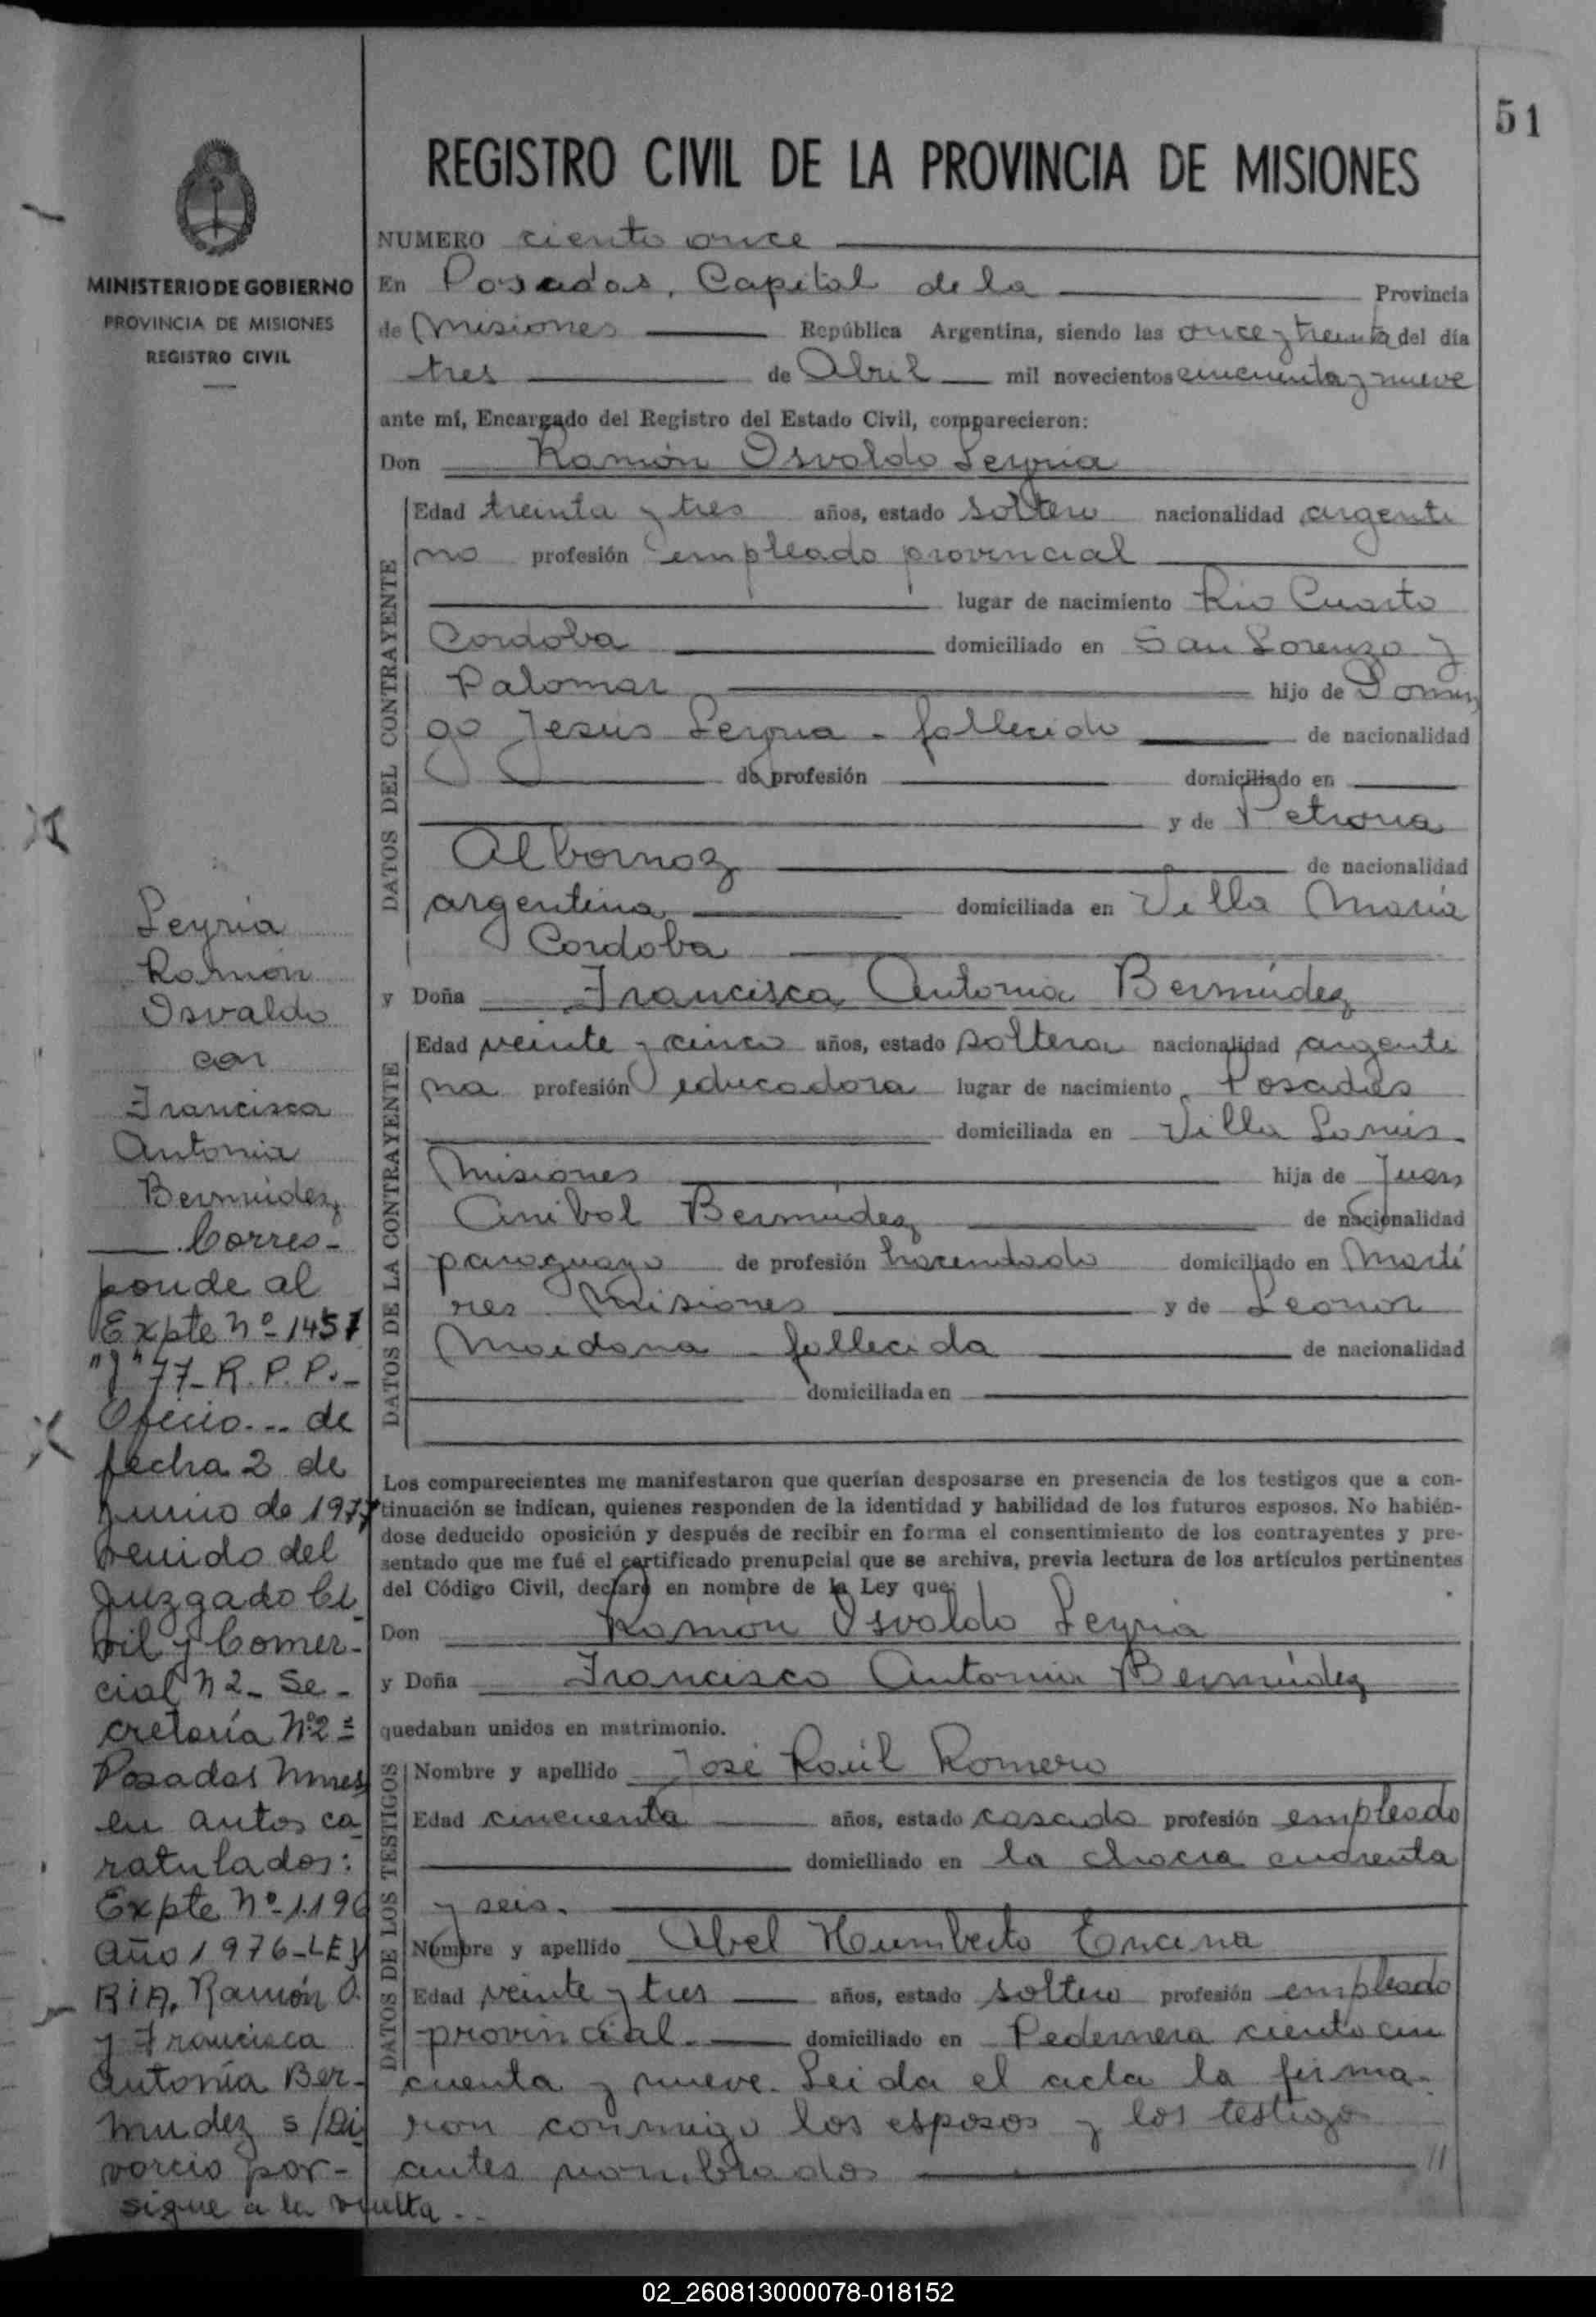 51
REGISTRO CIVIL DE LA PROVINCIA DE MISIONES
MINISTERIO DE GOBIERNO
PROVINCIA DE MISIONES
REGISTRO CIVIL
NUMERO ciento once
En Posadas, Capital de la Provincia
de Misiones República Argentina, siendo las once y treinta del día
tres de Abril mil novecientos cincuenta y nueve
ante mí, Encargado del Registro del Estado Civil, comparecieron:
Don Ramón Osvaldo Leyria
DATOS DEL CONTRAYENTE
Edad treinta y tres años, estado soltero nacionalidad argenti
no profesión empleado provincial
lugar de nacimiento Rio Cuarto
Cordoba domiciliado en San Lorenzo y
Palomar hijo de Domin
go Jesús Leyria - fallecido de nacionalidad
de profesión domiciliado en
y de Petrona
Albornoz de nacionalidad
argentina domiciliada en Villa María
Cordoba
y Doña Francisca Antonia Bermúdez
DATOS DE LA CONTRAYENTE
Edad veinte y cinco años, estado soltera nacionalidad argenti
na profesión educadora lugar de nacimiento Posadas
domiciliada en Villa Lanús.
Misiones hija de Juan
Anibal Bermúdez de nacionalidad
paraguayo de profesión hacendado domiciliado en Marti
res Misiones y de Leonor
Maidana - fallecida de nacionalidad
domiciliada en
Los comparecientes me manifestaron que querían desposarse en presencia de los testigos que a con-
tinuación se indican, quienes responden de la identidad y habilidad de los futuros esposos. No habién-
dose deducido oposición y después de recibir en forma el consentimiento de los contrayentes y pre-
sentado que me fué el certificado prenupcial que se archiva, previa lectura de los artículos pertinentes
del Código Civil, declaro en nombre de la Ley que:
Don Ramon Osvaldo Leyria
y Doña Francisca Antonia Bermúdez
quedaban unidos en matrimonio.
DATOS DE LOS TESTIGOS
Nombre y apellido José Raúl Romero
Edad cincuenta años, estado casado profesión empleado
domiciliado en la chacra cuarenta
y seis.
Nombre y apellido Abel Humberto Encina
Edad veinte y tres años, estado soltero profesión empleado
provincial. domiciliado en Pedernera ciento cin
cuenta y nueve. Leida el acta la firma-
ron conmigo los esposos y los testigos
antes nombrados //
Leyria
Ramón
Osvaldo
con
Francisca
Antonia
Bermúdez
Corres-
ponde al
Expte Nº 1457
"J" 77- R.P.P.-
Oficio... de
fecha 2 de
junio de 1977
venido del
Juzgado Ci-
vil y Comer-
cial N 2- Se-
cretaría Nº2 =
Posadas Mnes
en autos ca
ratulados:
Expte Nº 1196
año 1976-LEY
RIA, Ramón O.
y Francisca
Antonia Ber-
mudez s/Di
vorcio por-
sigue a la vuelta..
02_260813000078-018152